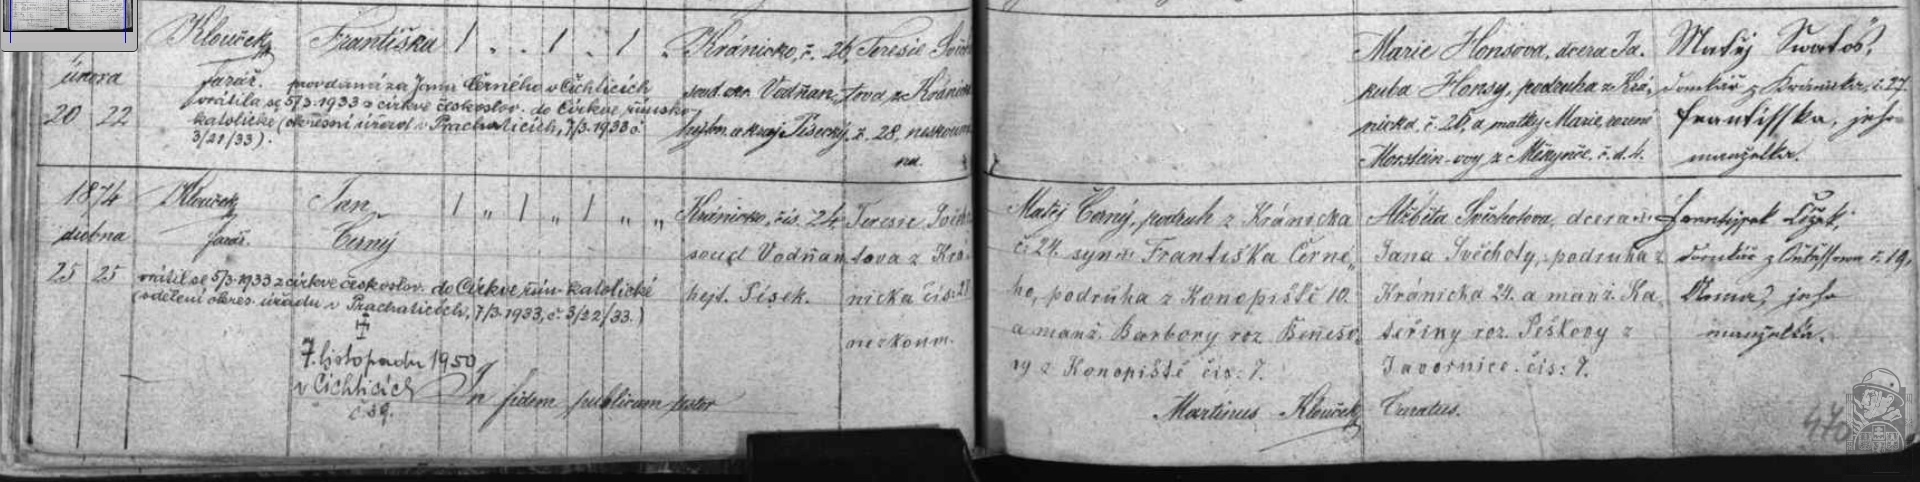 Klouček Františka 1 „ „ 1 „ 1 „ Kránicko, č. 26, Teresie
února farář. provdaná za Jana Černého v Čichticích soud okr. Vodňan, tova z Kránicka
20 22 vrátila se 5/3. 1933 z církve českoslov. do Církve římsko-
katolické (okresní úřad v Prachaticích, 7/3. 1933 č. hejtm. a kraj Písecký. č. 28, neskoum.
3/21/33). na.
Marie Honsova, dcera Ja- Matěj Swatoš,
kuba Honsy, podruha z Krá- domkář z Kránicka č. 27.
nicka č. 26, a matky Marie, rozené Frantisska, jeho
z č. d. 4. manželka.
1874 Klouček Jan 1 „ 1 „ 1 „ „ Kránicko, čís. 24. Teresie
dubna farář. Černý soud Vodňan tova z Krá-
25 25 vrátil se 5/3. 1933 z církve českoslov. do Církve řím-katolické hejt. Písek. nicka čís. 28
(sdělení okres. úřadu v Prachaticích, 7/3. 1933, č. 3/22/33.) nezkoum.
7. listopadu 1950
v Čichticích
č. 59.
In fidem publicam testor
Matěj Černý, podruh z Kránicka Alžběta Svěchotova, dcera
č. 24. syn Františka Černé- Jana Svěchoty, podruha z domkář z č. 19,
ho, podruha z Konopiště 10. Kránicka 24. a manž. Ka- Anna, jeho
a manž. Barbory roz. Beneso- teřiny roz. Peškovy z manželka.
vy z Konopiště čís: 7. Javornice. čís: 7.
Martinus Klouček Curatus.
470